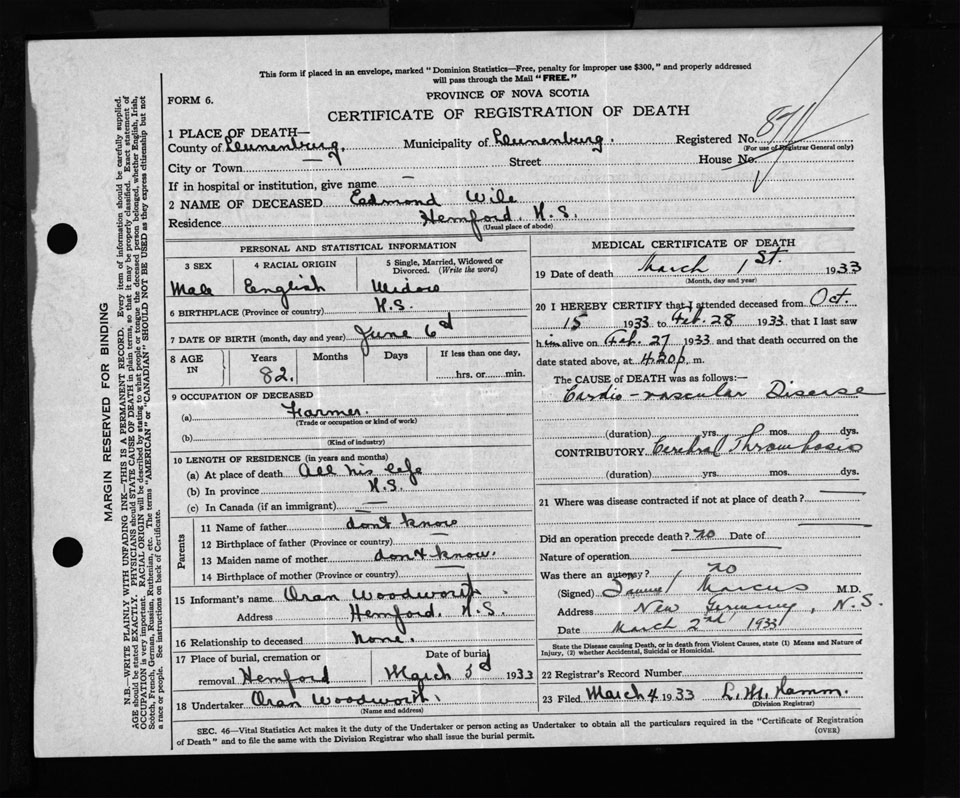 This form if placed in an envelope, marked "Dominion Statistics—Free, penalty for improper use $300," and properly addressed
will pass through the Mail "FREE."
FORM 6.
PROVINCE OF NOVA SCOTIA
CERTIFICATE OF REGISTRATION OF DEATH
1 PLACE OF DEATH—
County of Lunenburg. Municipality of Lunenburg. Registered No.
(For use of Registrar General only)
City or Town — Street House No.
If in hospital or institution, give name —
2 NAME OF DECEASED Eadmond Wile
Residence Hemford. N.S.
(Usual place of abode)
PERSONAL AND STATISTICAL INFORMATION
3 SEX 4 RACIAL ORIGIN 5 Single, Married, Widowed or
Divorced. (Write the word)
Male English Widow
6 BIRTHPLACE (Province or country) N.S.
7 DATE OF BIRTH (month, day and year) June 6d
8 AGE IN Years Months Days If less than one day,
82. hrs. or min.
9 OCCUPATION OF DECEASED
(a) Farmer.
(Trade or occupation or kind of work)
(b)
(Kind of industry)
10 LENGTH OF RESIDENCE (in years and months)
(a) At place of death All his life
(b) In province N.S.
(c) In Canada (if an immigrant) —
Parents
11 Name of father dont know
12 Birthplace of father (Province or country) —
13 Maiden name of mother dont know.
14 Birthplace of mother (Province or country) —
15 Informant's name Oran Woodworth.
Address Hemford. N.S.
16 Relationship to deceased None.
17 Place of burial, cremation or Date of burial
removal Hemford March 3d 1933
18 Undertaker Oran Woodworth.
(Name and address)
MEDICAL CERTIFICATE OF DEATH
19 Date of death March 1st. 1933
(Month, day and year)
20 I HEREBY CERTIFY that I attended deceased from Oct.
15 1933 to Feb. 28 1933, that I last saw
him alive on Feb. 27 1933 and that death occurred on the
date stated above, at 4.20 p. m.
The CAUSE OF DEATH was as follows:—
Cardio-vascular Disease
(duration) yrs. mos. dys.
CONTRIBUTORY Cerebral Thrombosis
(duration) yrs. mos. dys.
21 Where was disease contracted if not at place of death? —
Did an operation precede death? no Date of —
Nature of operation
Was there an autopsy? no
(Signed) Marcus M.D.
Address New Germany, N.S.
Date March 2nd 1933
State the Disease causing Death, or in death from Violent Causes, state (1) Means and Nature of
Injury, (2) whether Accidental, Suicidal or Homicidal.
22 Registrar's Record Number
23 Filed March 4 1933 L. M. Hamm.
(Division Registrar)
SEC. 46—Vital Statistics Act makes it the duty of the Undertaker or person acting as Undertaker to obtain all the particulars required in the "Certificate of Registration
of Death" and to file the same with the Division Registrar who shall issue the burial permit.
(OVER)
MARGIN RESERVED FOR BINDING
N.B.—WRITE PLAINLY WITH UNFADING INK—THIS IS A PERMANENT RECORD. Every item of information should be carefully supplied.
AGE should be stated EXACTLY. PHYSICIANS should STATE CAUSE OF DEATH in plain terms, so that it may be properly classified. Exact statement of
OCCUPATION is very important. RACIAL ORIGIN will be described by stating to what people or tongue the deceased person belonged, whether English, Irish,
Scotch, French, German, Russian, Ruthenian, etc. The terms "AMERICAN" or "CANADIAN" SHOULD NOT BE USED as they express citizenship but not
a race or people. See instructions on back of Certificate.